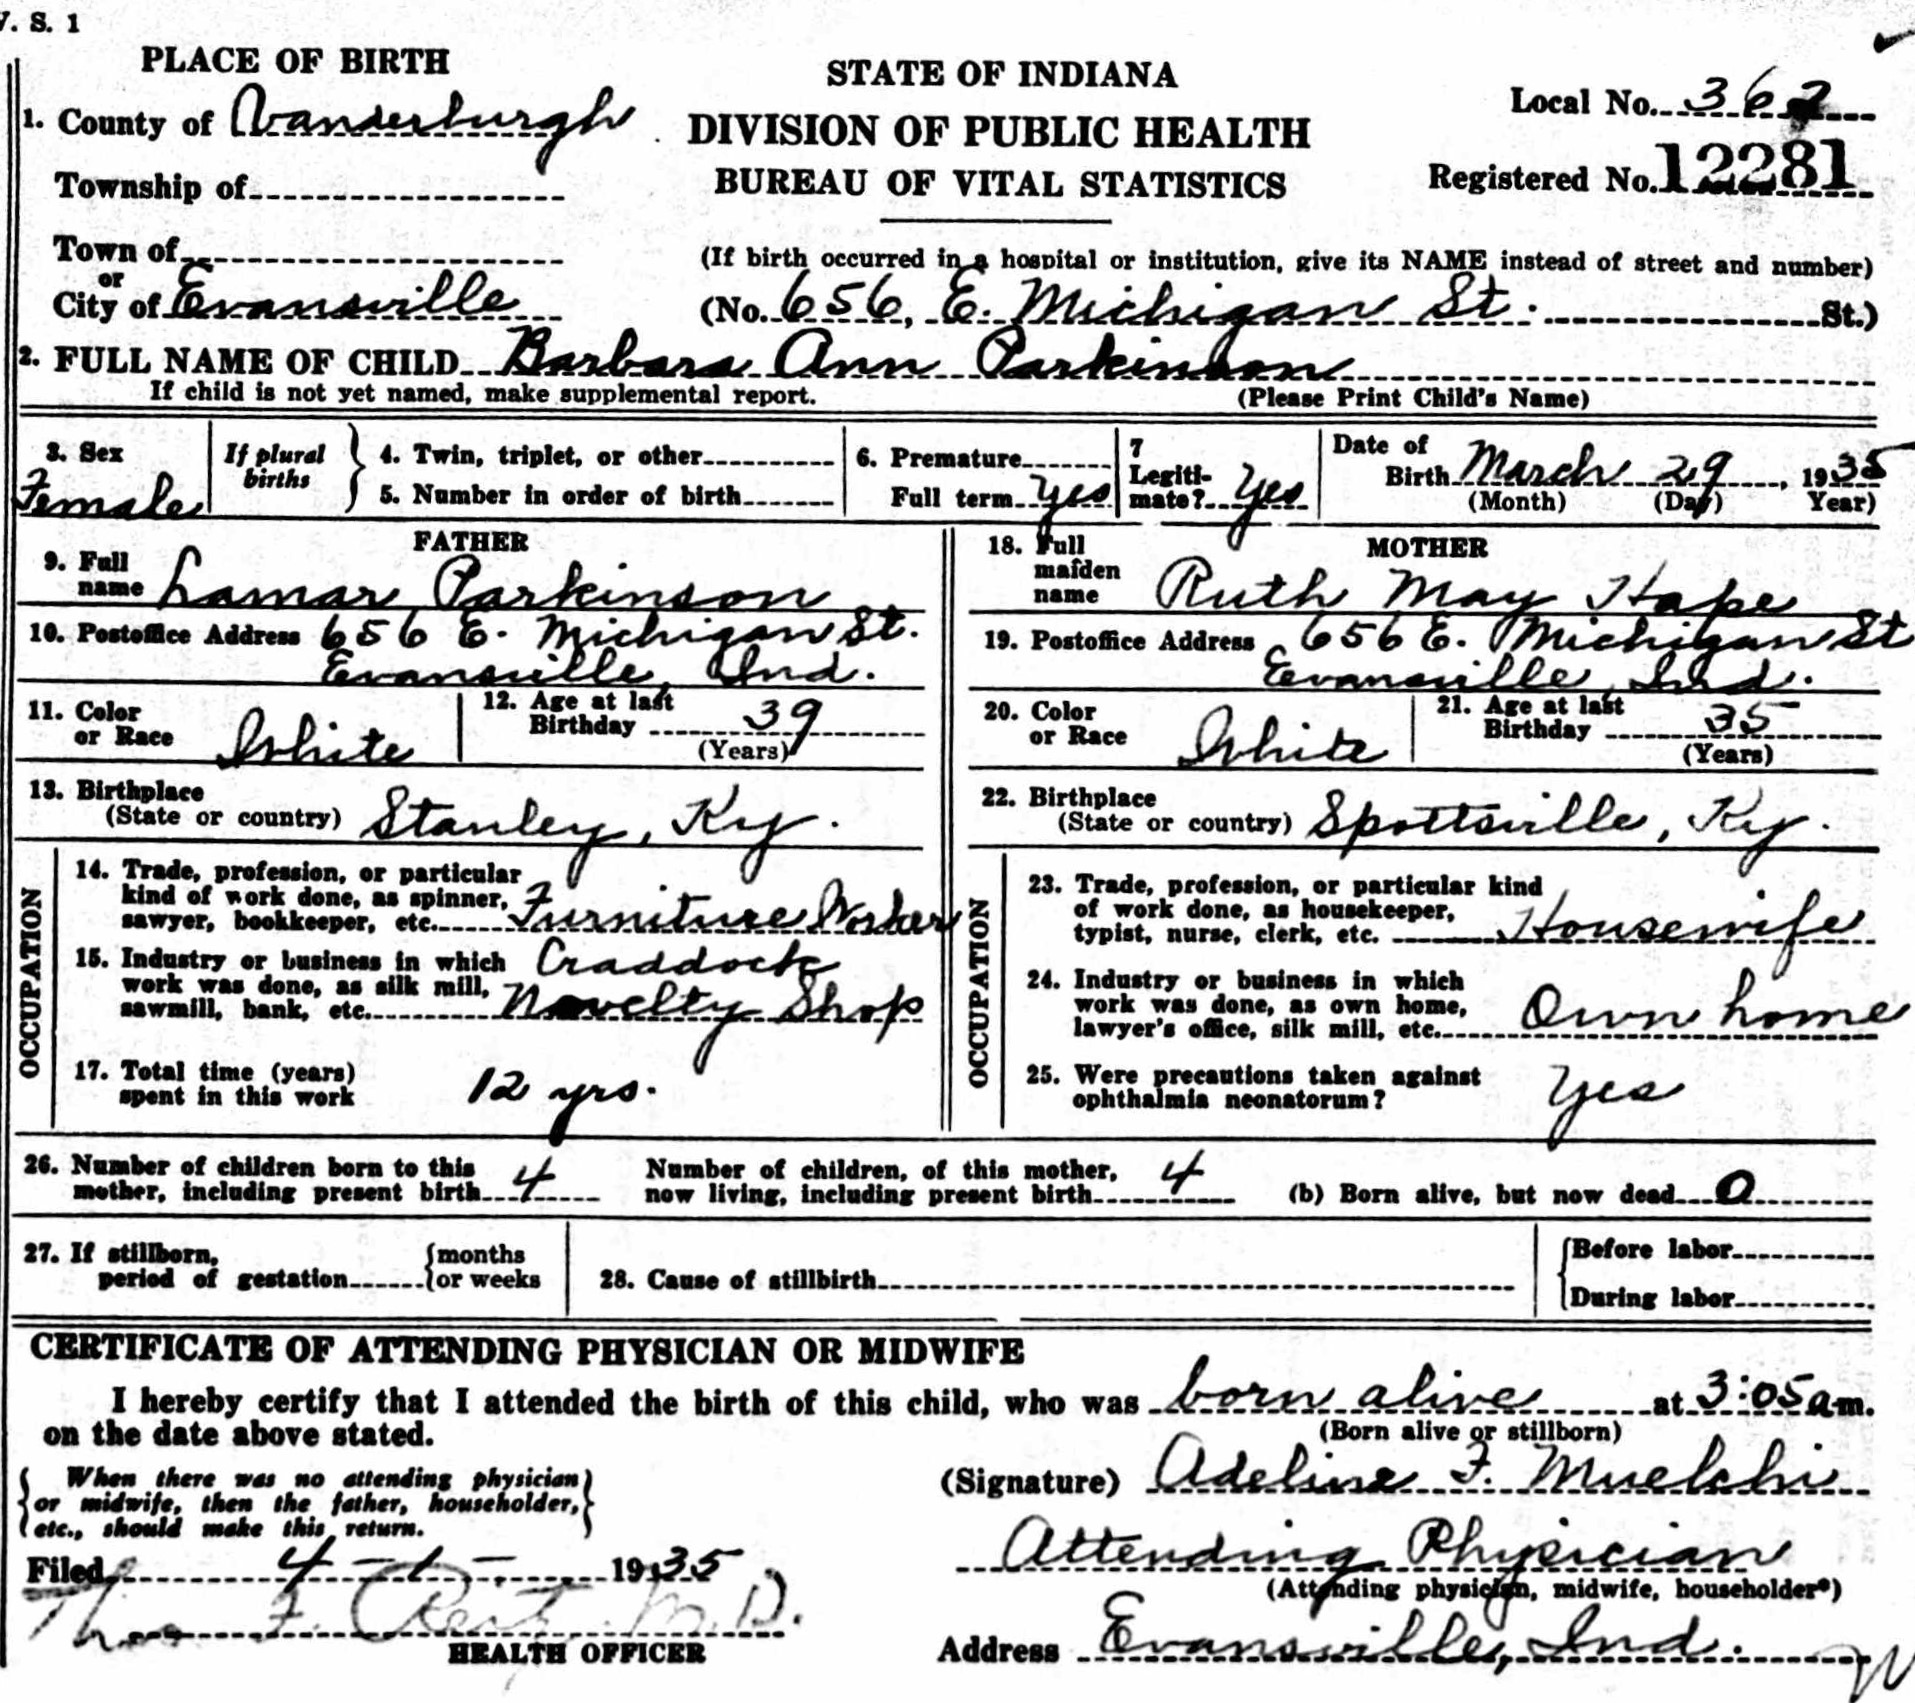 V. S. 1
PLACE OF BIRTH
STATE OF INDIANA
DIVISION OF PUBLIC HEALTH
BUREAU OF VITAL STATISTICS
Local No. 362
Registered No. 12281
1. County of Vanderburgh
Township of
Town of
or
City of Evansville
(If birth occurred in a hospital or institution, give its NAME instead of street and number)
(No. 656, E. Michigan St. St.)
2. FULL NAME OF CHILD Barbara Ann Parkinson
If child is not yet named, make supplemental report. (Please Print Child's Name)
3. Sex
Female
If plural
births
4. Twin, triplet, or other
5. Number in order of birth
6. Premature
Full term yes
7
Legiti-
mate? yes
Date of
Birth March 29, 1935
(Month) (Day) Year)
FATHER
9. Full
name Lamar Parkinson
10. Postoffice Address 656 E. Michigan St.
Evansville, Ind.
11. Color
or Race White
12. Age at last
Birthday 39
(Years)
13. Birthplace
(State or country) Stanley, Ky.
OCCUPATION
14. Trade, profession, or particular
kind of work done, as spinner,
sawyer, bookkeeper, etc. Furniture Worker
15. Industry or business in which Craddock
work was done, as silk mill,
sawmill, bank, etc. Novelty Shop
17. Total time (years)
spent in this work 12 yrs.
MOTHER
18. Full
maiden
name Ruth May Hape
19. Postoffice Address 656 E. Michigan St
Evansville, Ind.
20. Color
or Race White
21. Age at last
Birthday 35
(Years)
22. Birthplace
(State or country) Spottsville, Ky.
OCCUPATION
23. Trade, profession, or particular kind
of work done, as housekeeper,
typist, nurse, clerk, etc. Housewife
24. Industry or business in which
work was done, as own home,
lawyer's office, silk mill, etc. Own home
25. Were precautions taken against
ophthalmia neonatorum? yes
26. Number of children born to this
mother, including present birth 4
Number of children, of this mother,
now living, including present birth 4
(b) Born alive, but now dead 0
27. If stillborn,
period of gestation
months
or weeks
28. Cause of stillbirth
Before labor
During labor
CERTIFICATE OF ATTENDING PHYSICIAN OR MIDWIFE
I hereby certify that I attended the birth of this child, who was born alive at 3:05 a m.
on the date above stated. (Born alive or stillborn)
When there was no attending physician
or midwife, then the father, householder,
etc., should make this return.
(Signature) Adeline F. Muelchi
Attending Physician
(Attending physician, midwife, householder*)
Filed 4-1- 1935
Thos F. M.D.
HEALTH OFFICER
Address Evansville, Ind.